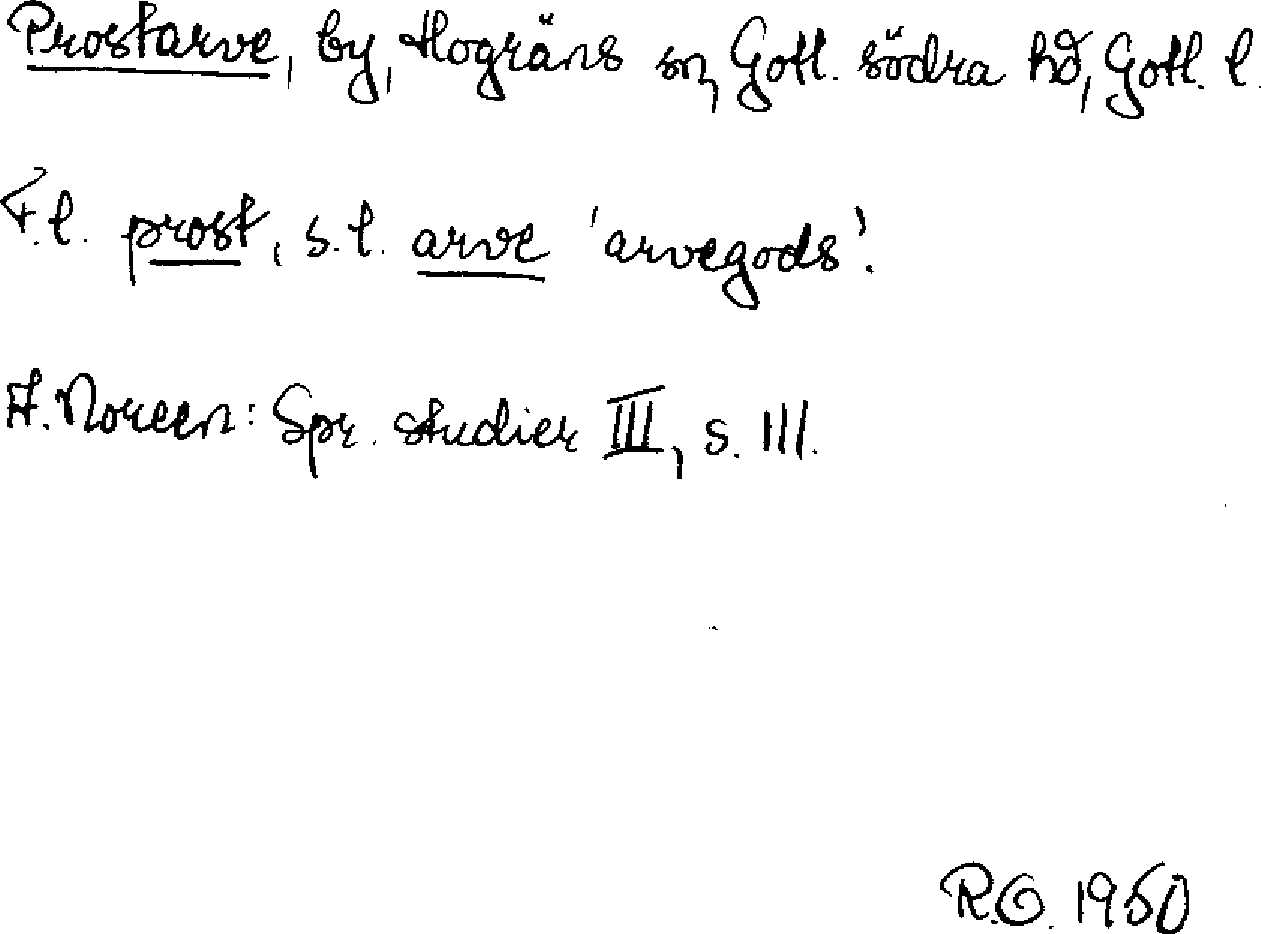 Prostarve, by, Hogräns sn, Gotl. södra hd, Gotl. l.
F.l. prost, s.l. arve 'arvegods'.
A. Noreen: Spr. studier III, s. 111.
R.O. 1950